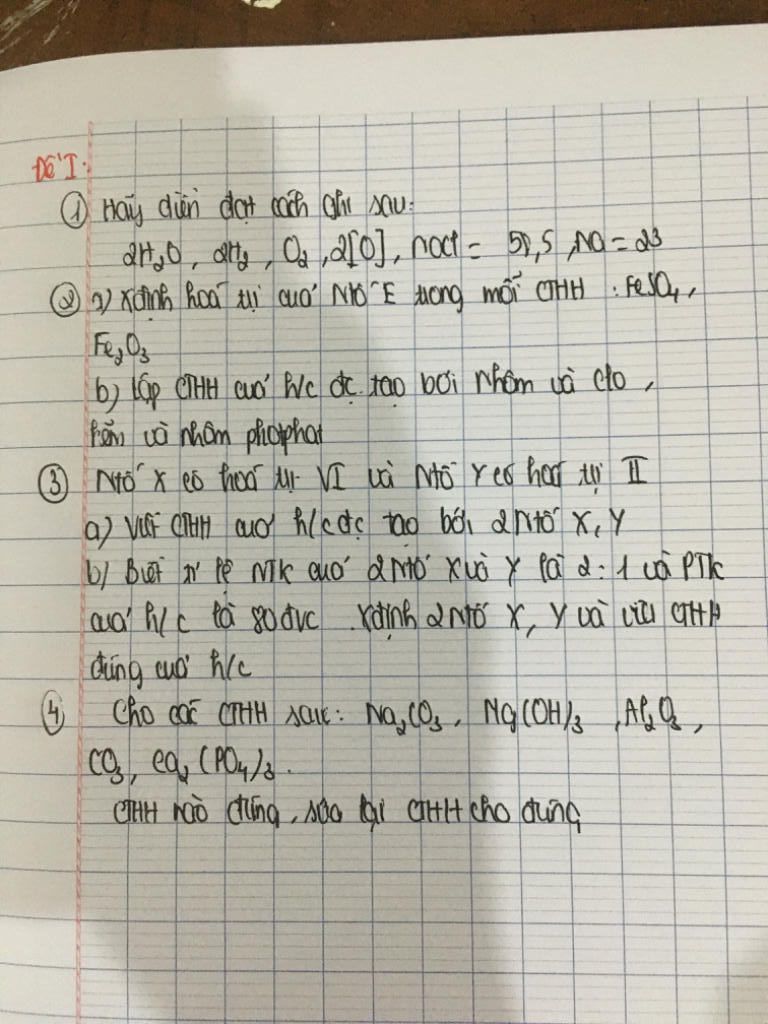 Đề I:
① Hãy diễn đạt cách ghi sau:
2H₂O, 2H₂, O₂, 2[O], NaCl = 58,5, Na = 23
② a) Xđịnh hoá trị của Ntố E trong mỗi CTHH : FeSO₄,
Fe₂O₃
b) Lập CTHH của h/c đc tạo bởi Nhôm và clo,
và nhôm photphat
③ Ntố X có hoá trị VI và Ntố Y có hoá trị II
a) Viết CTHH của h/c đc tạo bởi 2 Ntố X, Y
b) Biết tỉ lệ NTK của 2 Ntố X và Y là 2:1 và PTK
của h/c là 80 đvc Xđịnh 2 Ntố X, Y và viết CTHH
đúng của h/c
④ Cho các CTHH sau: Na₂CO₃, Mg(OH)₃, Al₂O₃,
CO₃, Ca₂(PO₄)₃.
CTHH nào đúng, sửa lại CTHH cho đúng